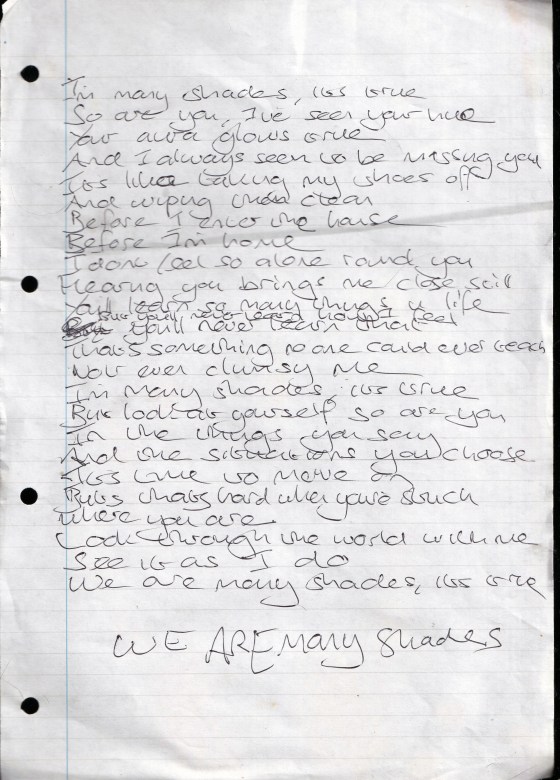 I'm many shades, its true
So are you, I've seen your hue
Your aura glows true
And I always seem to be missing you
Its like taking my shoes off
And wiping them clean
Before I enter the house
Before Im home
I dont feel so alone round you
Hearing you brings me close still
You'll learn so many things in life
But you'll never learn how I feel
you'll never learn that
That's something no one could ever teach
Not even clumsy me
I'm many shades, its true
But look at yourself, so are you
In the things you say
And the situations you choose
Its time to move on
But thats hard when you're stuck
where you are
Look through the world with me
See it as I do
We are many shades, its true
WE ARE Many Shades